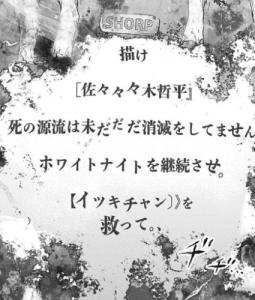 SHORP
描け
[佐々々々木哲平』
死の源流は未だだだ消滅をしてません
ホワイトナイトを継続させ。
【イツキチャン〕》を
救って。
ヂヂ